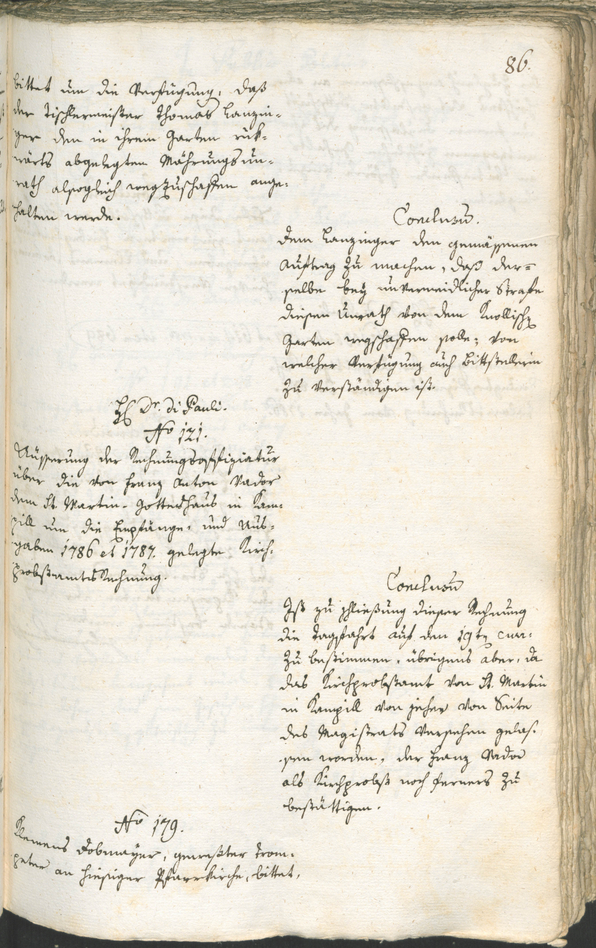 86.
bittet um die Verfügung, daß
der Tischlermeister Thomas Lanzin-
ger den in ihrem Garten rük-
wärts abgelegten Mährungsun-
rath alsogleich wegzuschaffen ange-
halten werde.
Conclusū.
Dem Lanzinger den gemässenen
Auftrag zu machen, daß der-
selbe bey unvermeidlicher Strafe
diesen Unrath von dem
Garten wegschaffen solle; von
welcher Verfügung auch Bittstellerin
zu verständigen ist.
H Dr. di Pauli.
No 121.
Äusserung der Rechnungsoffiziatur
über die von Franz Anton Nador
dem St. Martin-Gotteshaus in Kam-
pill um die Empfänge- und Aus-
gaben 1786 et 1787. gelegte Kirch-
probstamts Rechnung.
Conclusū
Ist zu schließung dieser Rechnung
die Tagfahrt auf den 19tn cur:
zu bestimmen, übrigens aber, da
das Kirchprobstamt von St. Martin
in Kampill von jeher von Seite
des Magistrats versehen gelas-
sen worden, der Franz Nador
als Kirchprobst noch ferners zu
bestättigen.
No 179.
Klemens Dobmayer, gewester Trom-
peter an hiesiger Pfarrkirche, bittet,